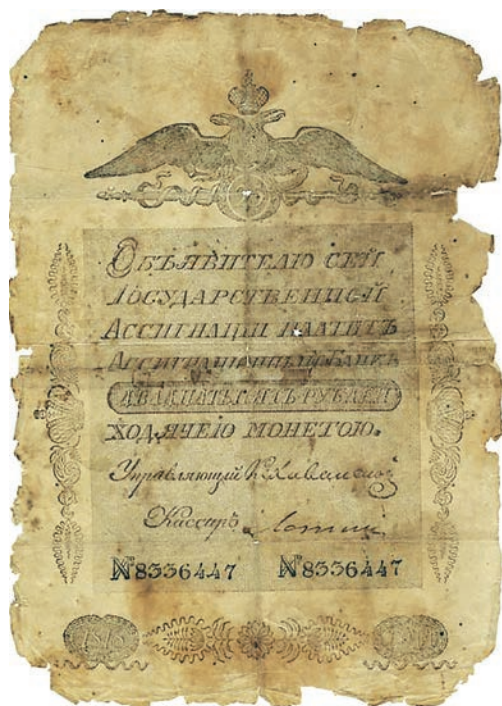 Объявителю сей
Государственной
Ассигнации платитъ
Ассигнационный Банкъ
двадцать пять рублей
ходячею монетою.
Управляющий
Кассиръ
№8336447 №8336447